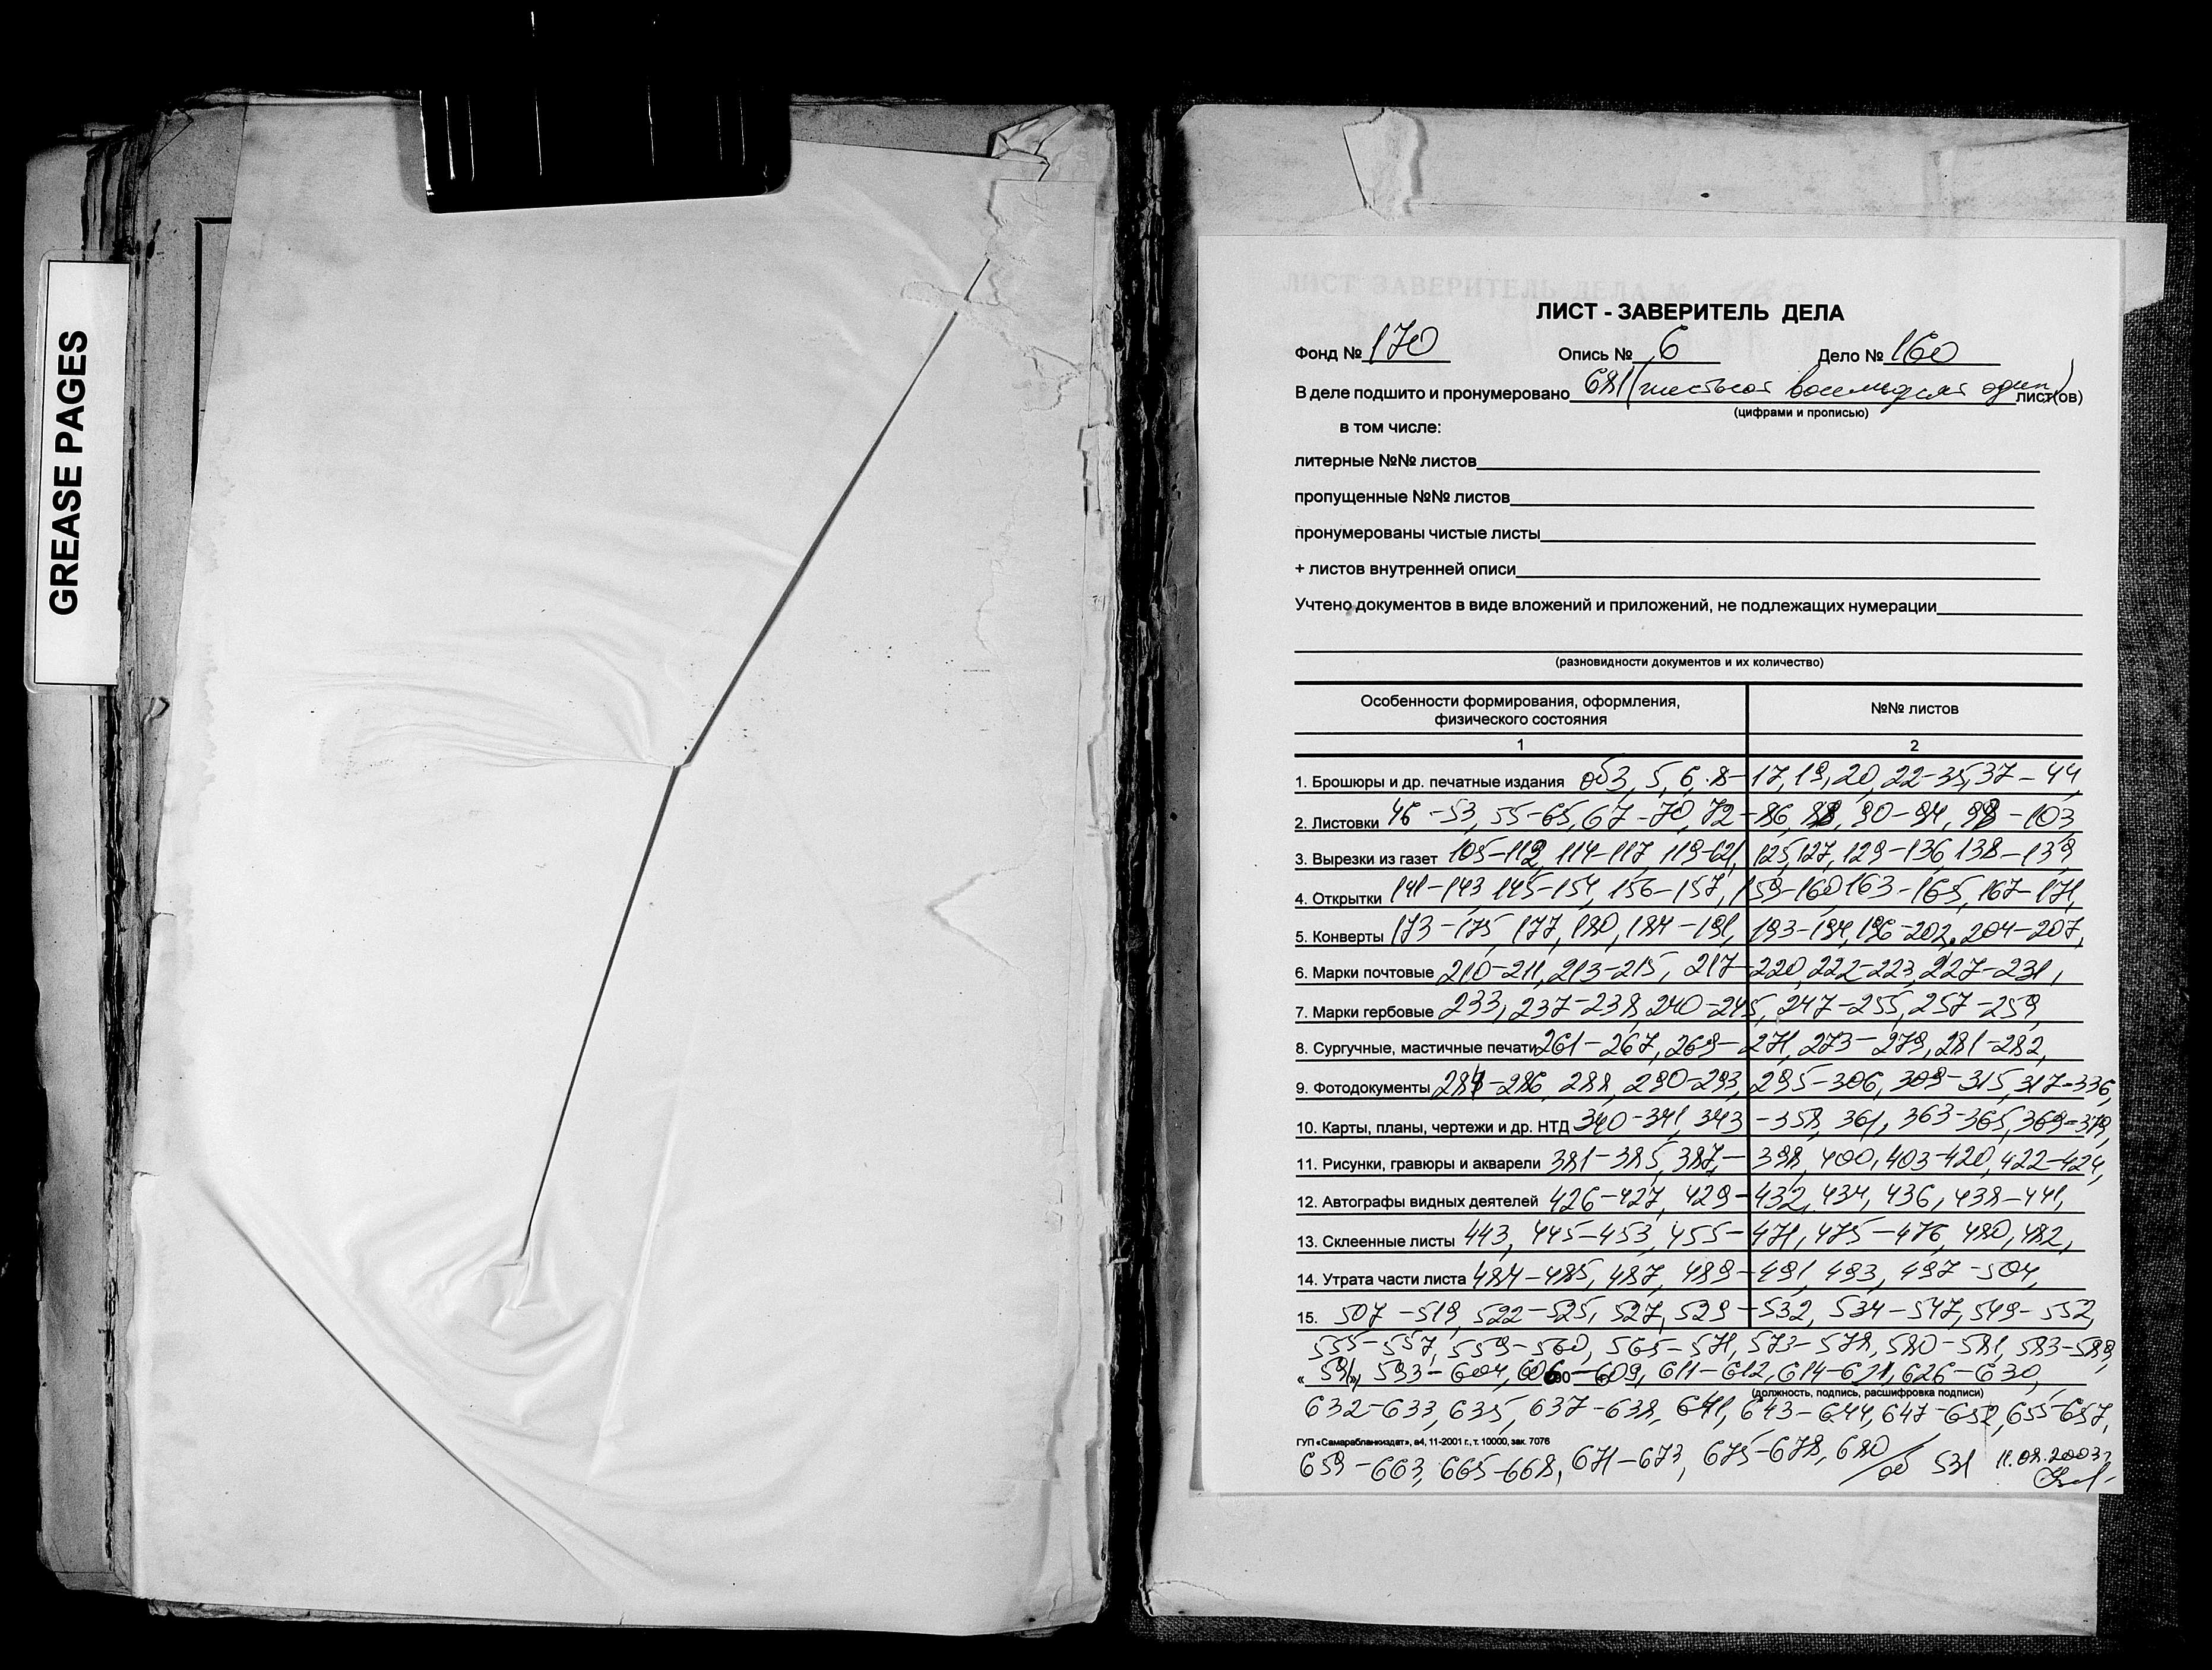 GREASE PAGES
ЛИСТ ЗАВЕРИТЕЛЬ ДЕЛА №
ЛИСТ - ЗАВЕРИТЕЛЬ ДЕЛА
Фонд № 170 Опись № 6 Дело № 160
В деле подшито и пронумеровано 681 (шестьсот восемьдесят один) лист(ов)
(цифрами и прописью)
в том числе:
литерные №№ листов
пропущенные №№ листов
пронумерованы чистые листы
+ листов внутренней описи
Учтено документов в виде вложений и приложений, не подлежащих нумерации
(разновидности документов и их количество)
Особенности формирования, оформления, физического состояния №№ листов
1 2
1. Брошюры и др. печатные издания об 3, 5, 6, 8-17, 19, 20, 22-35, 37-44,
2. Листовки 46-53, 55-65, 67-70, 72-86, 88, 90-94, 98-103
3. Вырезки из газет 105-112, 114-117, 119-121, 125, 127, 129-136, 138-139
4. Открытки 141-143, 145-154, 156-157, 159-160, 163-165, 167-171,
5. Конверты 173-175, 177, 180, 184-191, 193-194, 196-202, 204-207,
6. Марки почтовые 210-211, 213-215, 217-220, 222-223, 227-231,
7. Марки гербовые 233, 237-238, 240-245, 247-255, 257-259,
8. Сургучные, мастичные печати 261-267, 269-271, 273-279, 281-282,
9. Фотодокументы 284-286, 288, 290-293, 295-306, 309-315, 317-336,
10. Карты, планы, чертежи и др. НТД 340-341, 343-358, 361, 363-365, 369-379,
11. Рисунки, гравюры и акварели 381-385, 387-398, 400, 403-420, 422-424,
12. Автографы видных деятелей 426-427, 429-432, 434, 436, 438-441,
13. Склеенные листы 443, 445-453, 455-471, 475-476, 480, 482,
14. Утрата части листа 484-485, 487, 489-491, 493, 497-504,
15. 507-519, 522-525, 527, 529-532, 534-547, 549-552,
555-557, 559-560, 565-571, 573-578, 580-581, 583-589,
« 591, 593-604, 606-609, 611-612, 614-621, 626-630,
(должность, подпись, расшифровка подписи)
632-633, 635, 637-638, 641, 643-644, 647-652, 655-657,
ГУП «Самарабланкиздат», а4, 11-2001 г., т. 10000, зак. 7076
659-663, 665-668, 671-673, 675-678, 680 / об 531 11.08.2003г